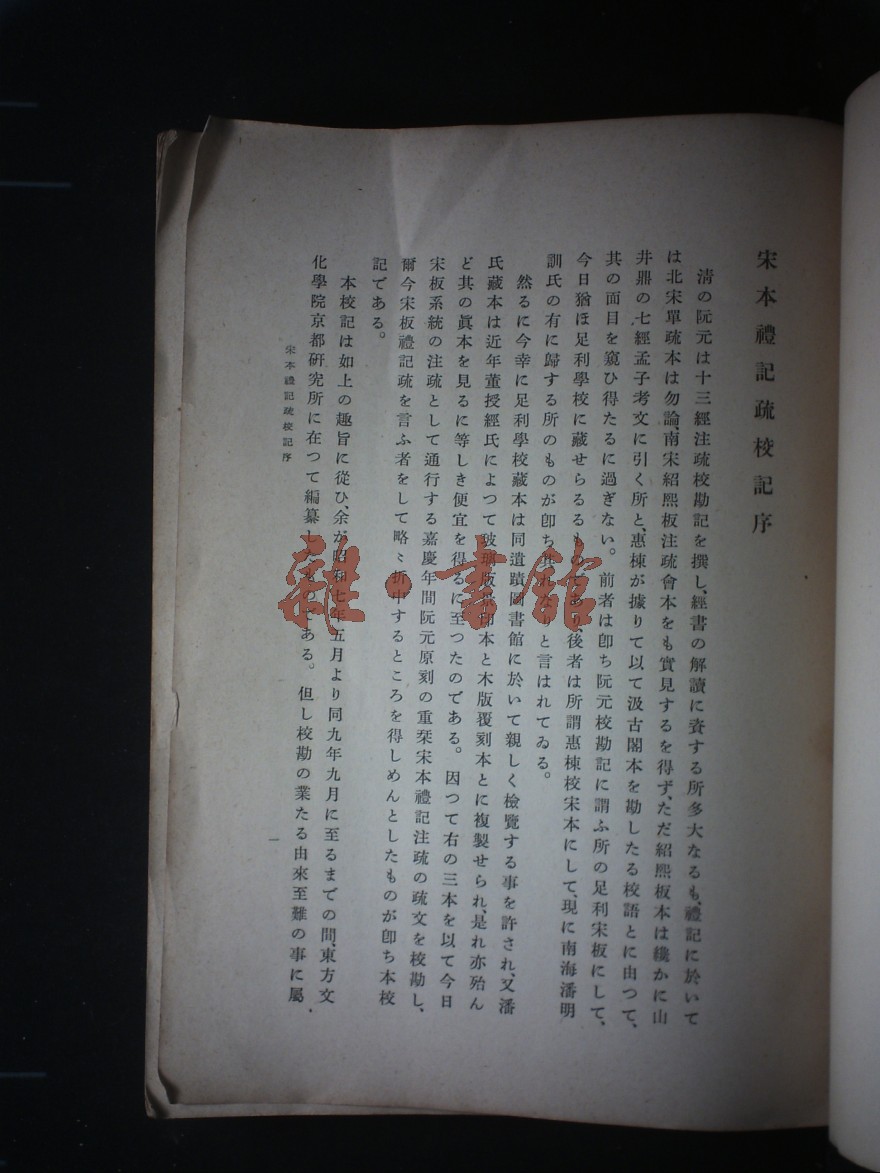 宋本禮記疏校記序
淸の阮元は十三經注疏校勘記を撰し、經書の解讀に資する所多大なるも、禮記に於いて
は北宋單疏本は勿論、南宋紹熙板注疏會本をも實見するを得ず、ただ紹熙板本は纔かに山
井鼎の七經孟子考文に引く所と、惠棟が據りて以て汲古閣本を勘したる校語とに由つて、
其の面目を窺ひ得たるに過ぎない。前者は卽ち阮元校勘記に謂ふ所の足利宋板にして、
今日猶ほ足利學校に藏せらるるものであり、後者は所謂惠棟校宋本にして、現に南海潘明
訓氏の有に歸する所のものが卽ち其れなりと言はれてゐる。
然るに今幸に足利學校藏本は同遺蹟圖書館に於いて親しく檢覽する事を許され、又潘
氏藏本は近年董授經氏によつて玻璃版景印本と木版覆刻本とに複製せられ、是れ亦殆ん
ど其の眞本を見るに等しき便宜を得るに至つたのである。因つて右の三本を以て今日
宋板系統の注疏として通行する嘉慶年間阮元原刻の重栞宋本禮記注疏の疏文を校勘し、
爾今宋板禮記疏を言ふ者をして略〻折中するところを得しめんとしたものが卽ち本校
記である。
本校記は如上の趣旨に從ひ、余が昭和七年五月より同九年九月に至るまでの間、東方文
化學院京都硏究所に在つて編纂したものである。但し校勘の業たる由來至難の事に屬
宋本禮記疏校記序
一
雜·書館